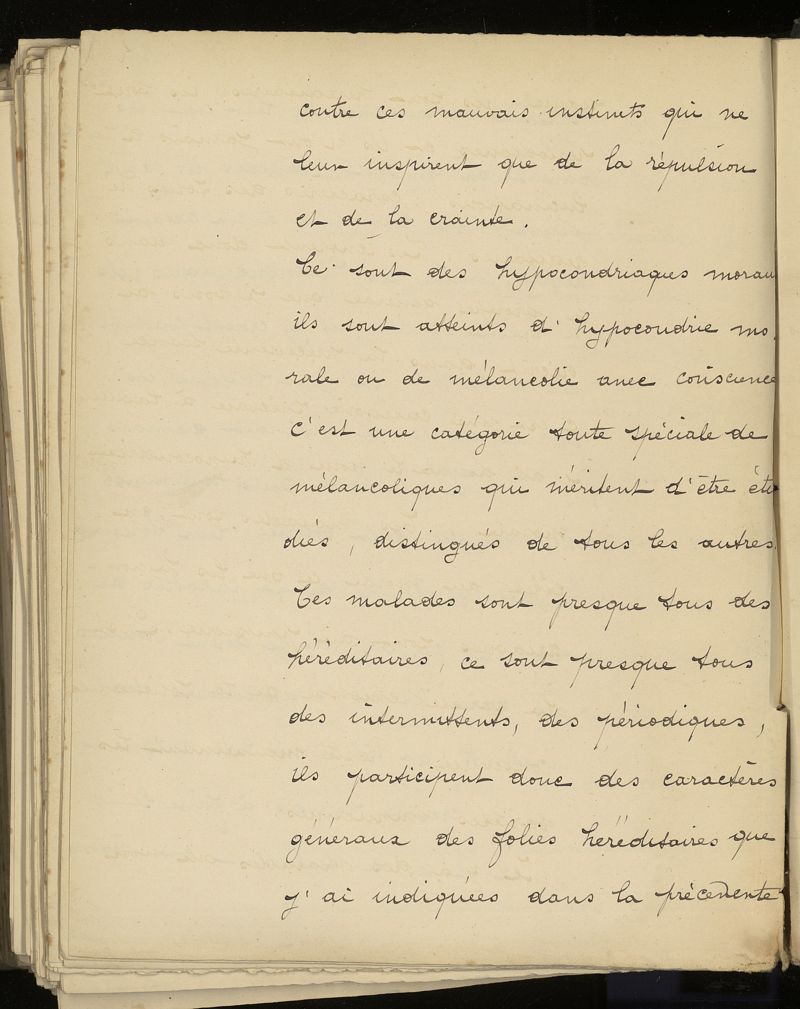 contre ces mauvais instincts qui ne
leur inspirent que de la répulsion
et de la crainte.
Ce sont des hypocondriaques morau
ils sont atteints d'hypocondrie mo
rale ou de mélancolie avec conscience
c'est une catégorie toute spéciale de
mélancoliques qui méritent d'être étu
diés, distingués de tous les autres.
Ces malades sont presque tous des
héréditaires, ce sont presque tous
des intermittents, des périodiques,
ils participent donc des caractères
généraux des folies héréditaires que
j'ai indiquées dans la précédente